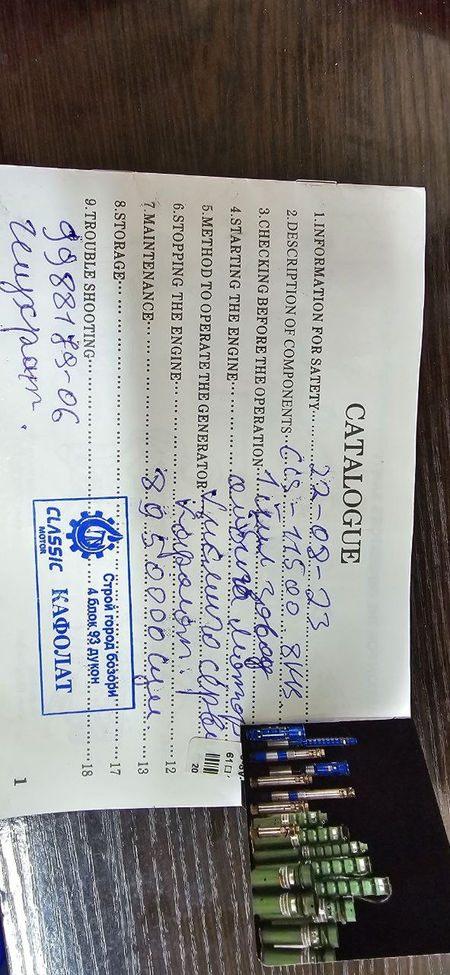 CATALOGUE
1.INFORMATION FOR SATETY
22-08-23
2.DESCRIPTION OF COMPONENTS
CCS-11500 8
3.CHECKING BEFORE THE OPERATION
1 йил завод
4.STARTING THE ENGINE
5.METHOD TO OPERATE THE GENERATOR
6.STOPPING THE ENGINE 12
7.MAINTENANCE 13
8950000 сум
8.STORAGE 17
9.TROUBLE SHOOTING 18
9988189-06
CLASSIC
MOTOR
Строй город бозори
4 блок 93 дукон
КАФОЛАТ
1
61
20